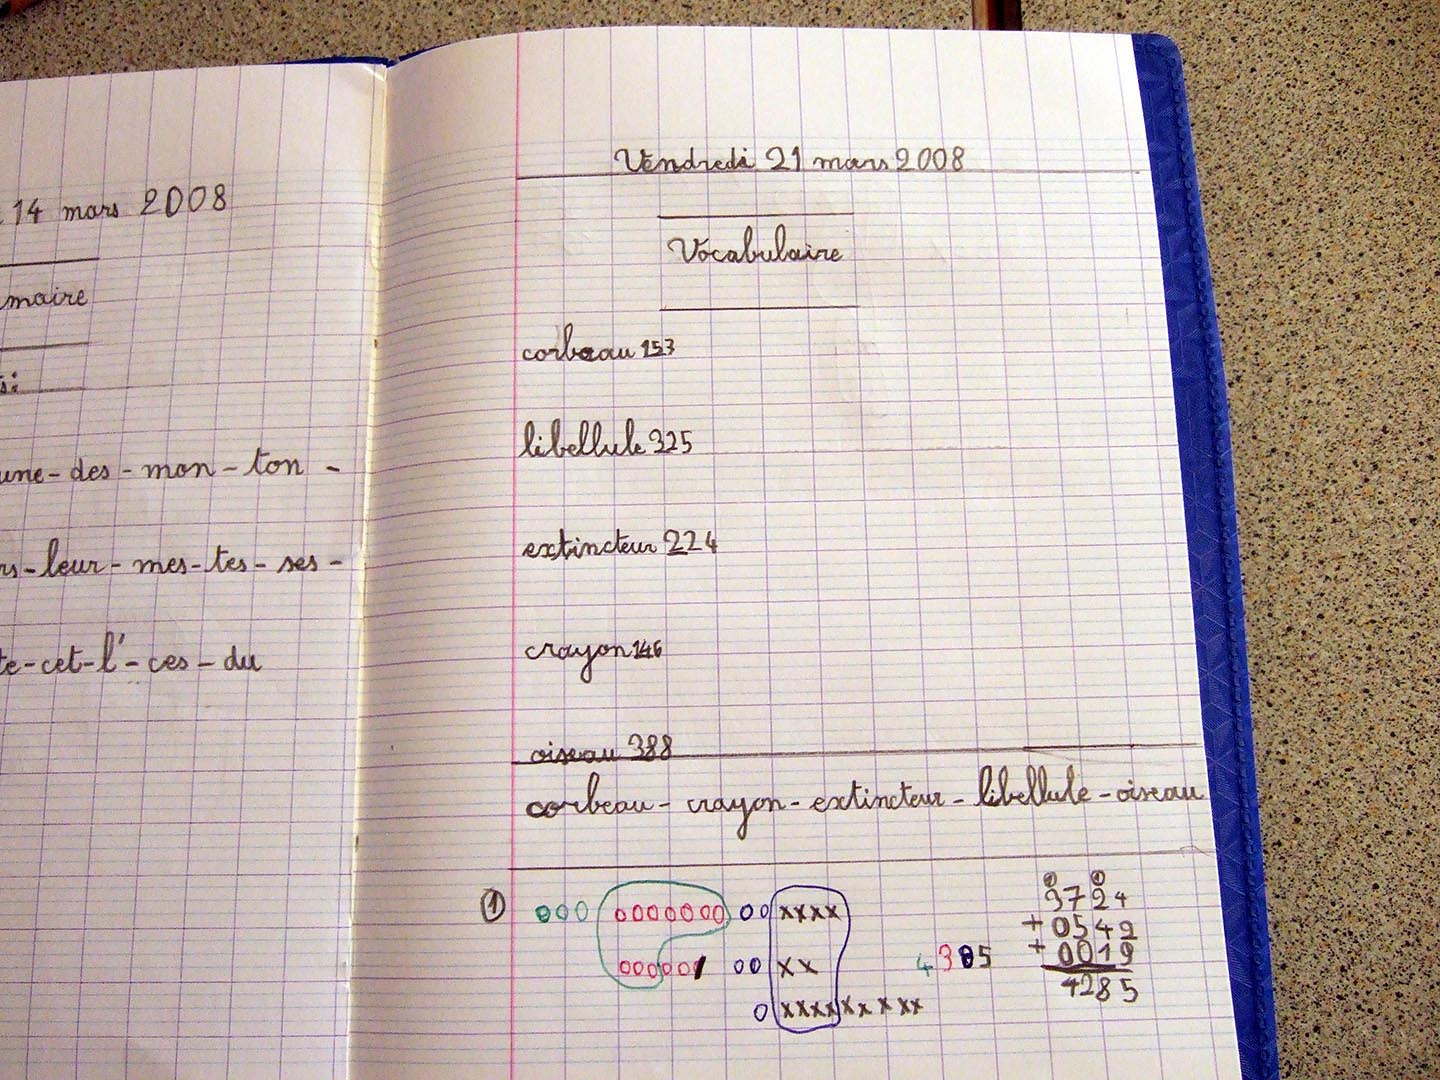 14 mars 2008
maire
s:
une - des - mon - ton -
rs - leur - mes - tes - ses -
te - cet - l' - ces - du
Vendredi 21 mars 2008
Vocabulaire
corbeau 153
libellule 325
extincteur 224
crayon 146
oiseau 388
corbeau - crayon - extincteur - libellule - oiseau
1
ooo ooooooo oo xxxx
oooooo oo xx
o xxxxxxxxx
4385
1 1
3724
+ 0542
+ 0019
4285